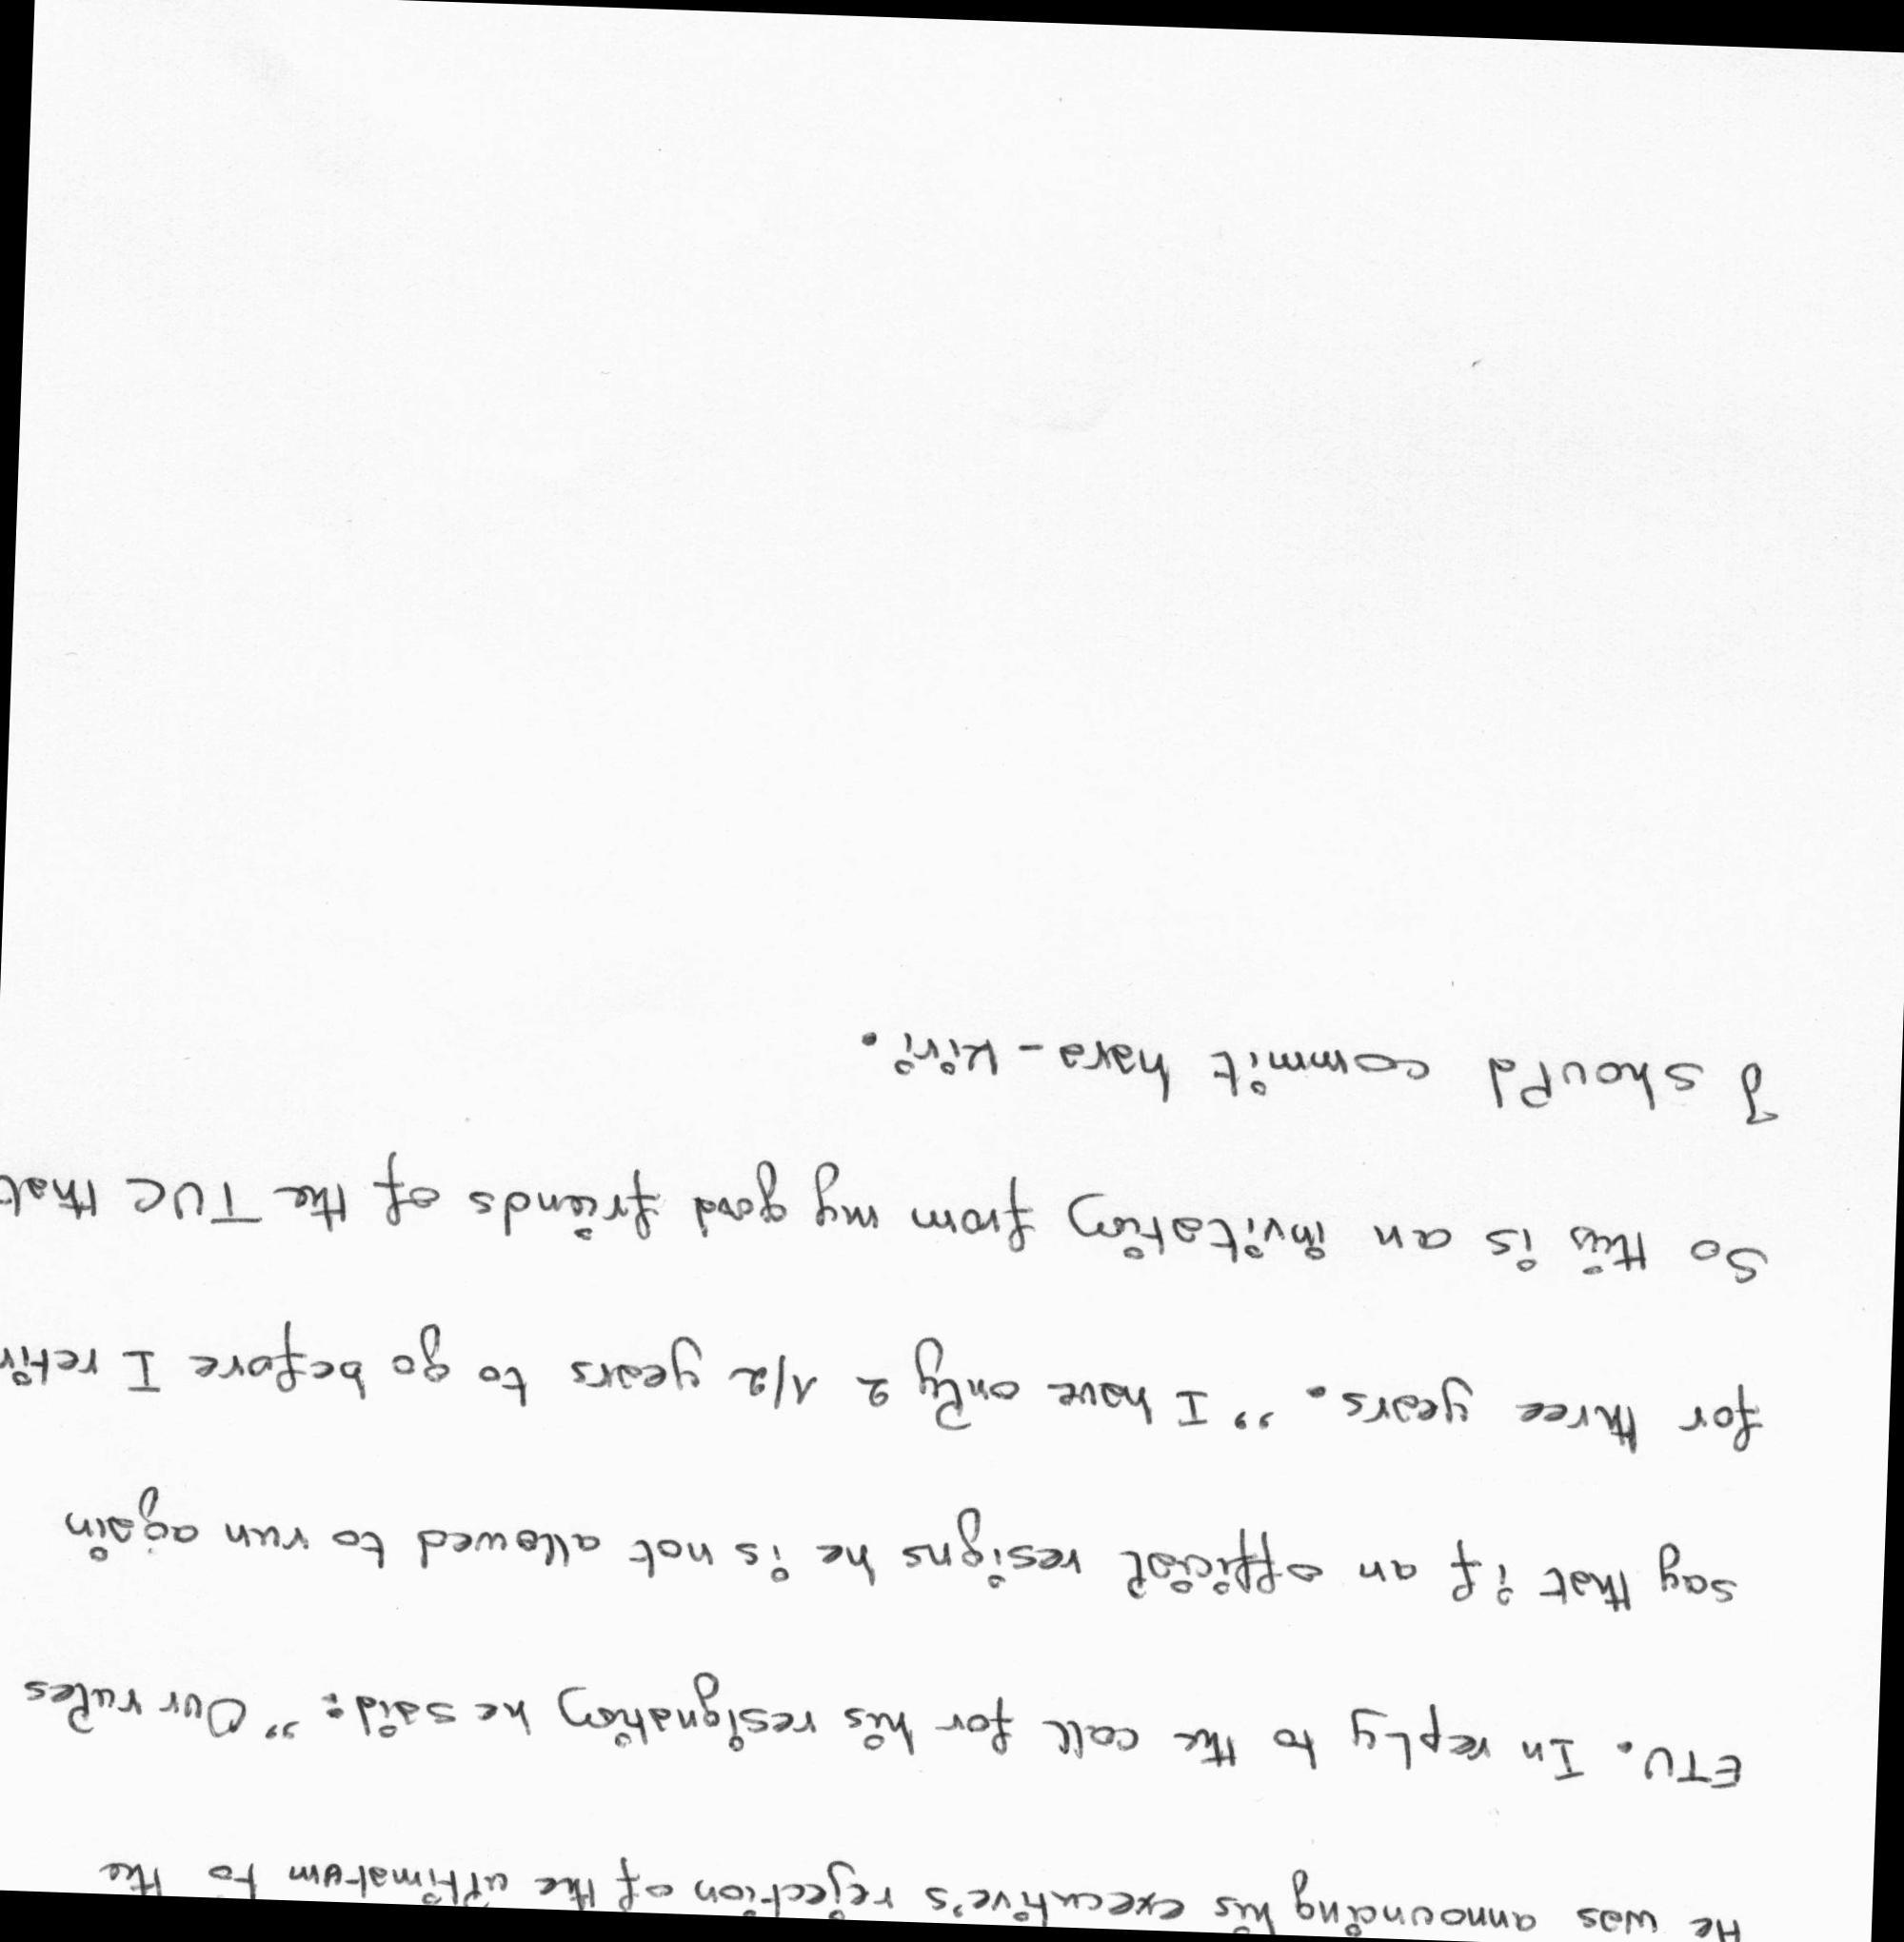 He was announcing his executive's rejection of the ultimatum to the
ETU. In reply to the call for his resignation he said: "Our rules
say that if an official resigns he is not allowed to run again
for three years. "I have only 2 1/2 years to go before I retir
So this is an invitation from my good friends of the TUC that
I should commit hara-kiri.